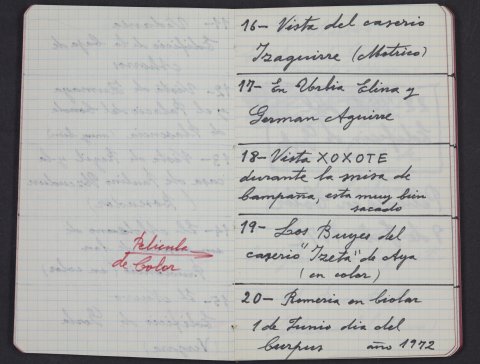 Pelicula
de Color
16- Vista del caserio
Izaguirre (Motrico)
17- En Urbia Elina y
German Aguirre
18- Vista XOXOTE
durante la misa de
Campaña, esta muy bien
sacado
19- Los Bueyes del
caserio "Izeta" de Aya
(en color)
20- Romeria en
1 de Junio dia del
Corpus año 1972